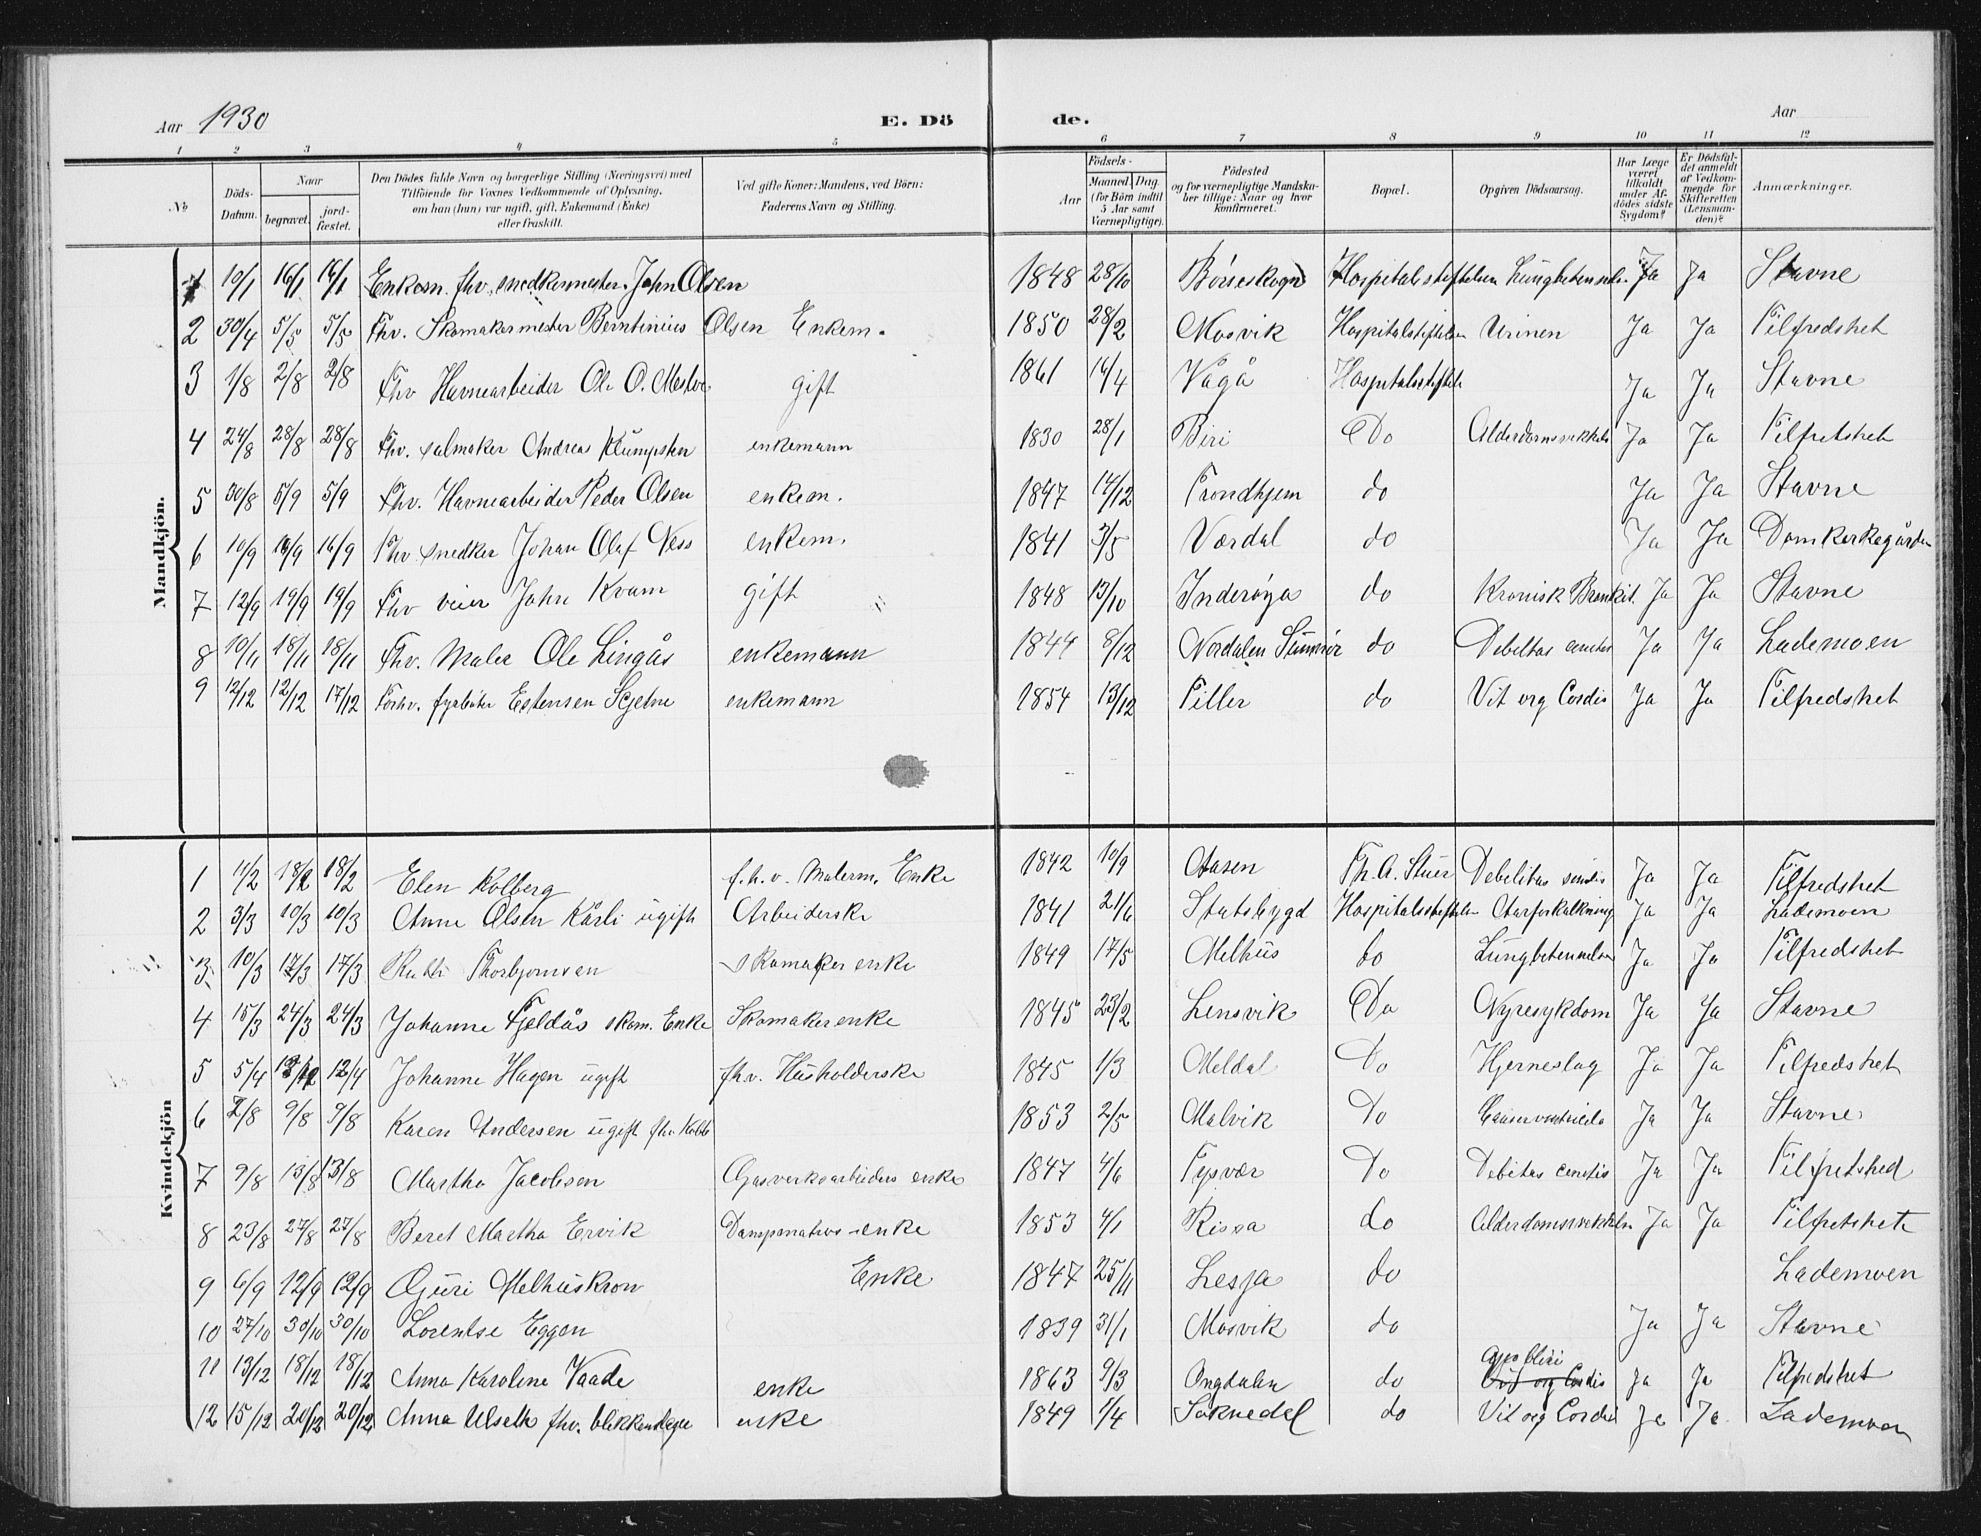 Aar 1930 E. Dö de. Aar
1 2 3 4 5 6 7 8 9 10 11 12
No Döds-Datum. Naar begravet. jord-fæstet. Den Dödes fulde Navn og borgerlige Stilling (Næringsvei) med Tilföiende for Voxnes Vedkommende af Oplysning, om han (hun) var ugift, gift, Enkemand (Enke) eller fraskilt. Ved gifte Koner: Mandens, ved Börn: Faderens Navn og Stilling. Födsels- Aar Maaned. Dag. (for Börn indtil 5 Aar samt Værnepligtige). Födested og for værnepligtige Mandskaber tillige: Naar og hvor konfirmeret. Bopæl. Opgiven Dödsaarsag. Har Læge været tilkaldt under Afdödes sidste Sygdom? Er Dödsfaldet anmeldt af Vedkommende for Skifteretten (Lensmanden)? Anmærkninger.
Mandkjön.
1 10/1 16/1 16/1 Enkem. fhv. snedkermester John Olsen 1848 28/10 Börseskogn Hospitalsstiftelsen Lungbetennelse Ja Ja Stavne
2 30/4 5/5 5/5 Fhv. Skomakermester Berntinius Olsen Enkem. 1850 28/2 Mosvik Hospitalstiftelsen Urinen Ja Ja Tilfredshet
3 1/8 2/8 2/8 Fhv Havnearbeider Ole O. gift 1861 16/4 Vågå Hospitalsstiftels Ja Ja Stavne
4 24/8 28/8 28/8 Fhv. salmaker Andreas enkemann 1830 28/1 Biri Do Alderdomssvekkels Ja Ja Tilfretshet
5 30/8 5/9 5/9 Fhv. Havnearbeider Peder Olsen enkem. 1847 14/12 Trondhjem do Ja Ja Stavne
6 10/9 16/9 16/9 Fhv snedker Johan Olaf Ness enkem. 1841 3/5 Værdal do Ja Ja Domkerkegården
7 12/9 19/9 19/9 Fhv veier John Kvam gift 1848 13/10 Inderøya do Kronisk Bronkit. Ja Ja Stavne
8 10/11 18/11 18/11 Fhv. Maler Ole Lingås enkemann 1844 8/12 Nordalen Sunmör do Debeltas Ja Ja Lademoen
9 12/12 12/12 17/12 Forhv. fyrböter Estensen Stjelme enkemann 1854 13/12 Tiller do Vit org Cordis Ja Ja Tilfredshet
Kvindekjön
1 11/2 18/2 18/2 Elen Kolberg f.h.v. Malerm. Enke 1842 10/9 Aasen Th. A. Stuer Debelitas senilis Ja Ja Tilfredshet
2 3/3 10/3 10/3 Anne Olsen Kårli ugift Arbeiderske 1841 21/6 Statsbygd Hospitalsstiftelsen Aarforkalkning Ja Ja Lademoen
3 10/3 17/3 17/3 Thorbjornsen skomaker enke 1849 17/5 Melhus do Lungbetennelse Ja Ja Tilfredshet
4 15/3 24/3 24/3 Johanne Fjeldås skom. Enke Skomakerenke 1845 23/2 Lensvik Do Nyresykdom Ja Ja Stavne
5 5/4 12/4 12/4 Johanne Hagen ugift fhv. Husholderske 1845 1/3 Meldal Do Hjerneslag Ja Ja Tilfredshet
6 2/8 9/8 9/8 Karen Andersen ugift fhv. 1853 2/5 Malvik Do Ja Ja Stavne
7 9/8 13/8 13/8 Martha Jacobsen Gasverksarbeiders enke 1847 4/6 Tysvær Do Debitas Ja Ja Tilfretshed
8 23/8 27/8 27/8 Beret Martha Ervik enke 1853 4/1 Rissa do Alderdomssvekkelse Ja Ja Tilfretshet
9 6/9 12/9 12/9 Gjuri Melhuskron Enke 1847 25/11 Lesja do Lademoen
10 27/10 30/10 30/10 Lorentse Eggen 1839 31/1 Mosvik do Ja Ja Stavne
11 13/12 18/12 18/12 Anna Karoline Vaade enke 1863 9/3 Ongdalen do Vit org Cordis Ja Ja Tilfredshet
12 15/12 20/12 20/12 Anna Ulseth fhv. blikkenslager enke 1849 1/4 Soknedal do Vit org Cordis Ja Ja Lademoen